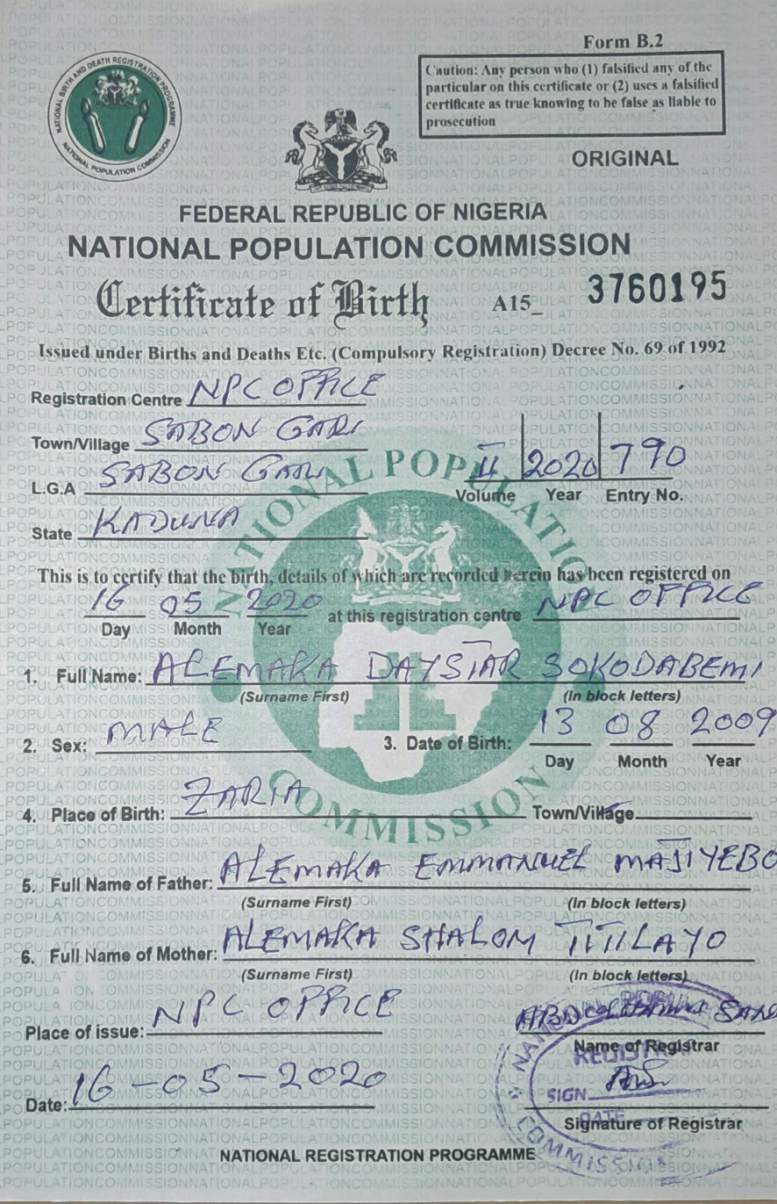 Form B.2
Caution: Any person who (1) falsified any of the
particular on this certificate or (2) uses a falsified
certificate as true knowing to he false as liable to
prosecution
NATIONAL BIRTH AND DEATH REGISTRATION PROGRAMME
NATIONAL POPULATION COMMISSION
ORIGINAL
FEDERAL REPUBLIC OF NIGERIA
NATIONAL POPULATION COMMISSION
Certificate of Birth A15_ 3760195
Issued under Births and Deaths Etc. (Compulsory Registration) Decree No. 69 of 1992
Registration Centre NPC OFFICE
Town/Village SABON GARI
L.G.A SABON GARI
II 2020 790
Volume Year Entry No.
State KADUNA
NATIONAL POPULATION COMMISSION
This is to certify that the birth, details of which are recorded herein has been registered on
16 05 2020 at this registration centre NPC OFFICE
Day Month Year
1. Full Name: ALEMAKA DAYSTAR SOKODABEMI
(Surname First) (In block letters)
2. Sex: MALE 3. Date of Birth: 13 08 2009
Day Month Year
4. Place of Birth: ZARIA Town/Village
5. Full Name of Father: ALEMAKA EMMANUEL MAJIYEBO
(Surname First) (In block letters)
6. Full Name of Mother: ALEMAKA SHALOM TITILAYO
(Surname First) (In block letters)
Place of issue: NPC OFFICE
Name of Registrar
Date: 16-05-2020
SIGN
DATE
Signature of Registrar
NATIONAL REGISTRATION PROGRAMME